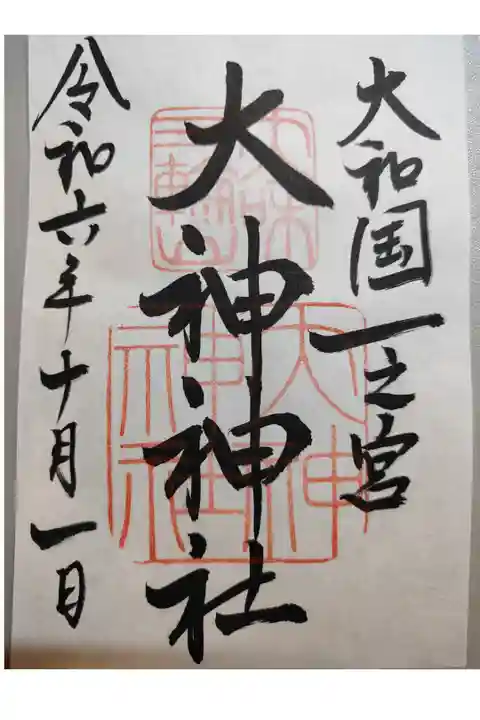 大和国一之宮
大神神社
令和六年十月一日
大神神社